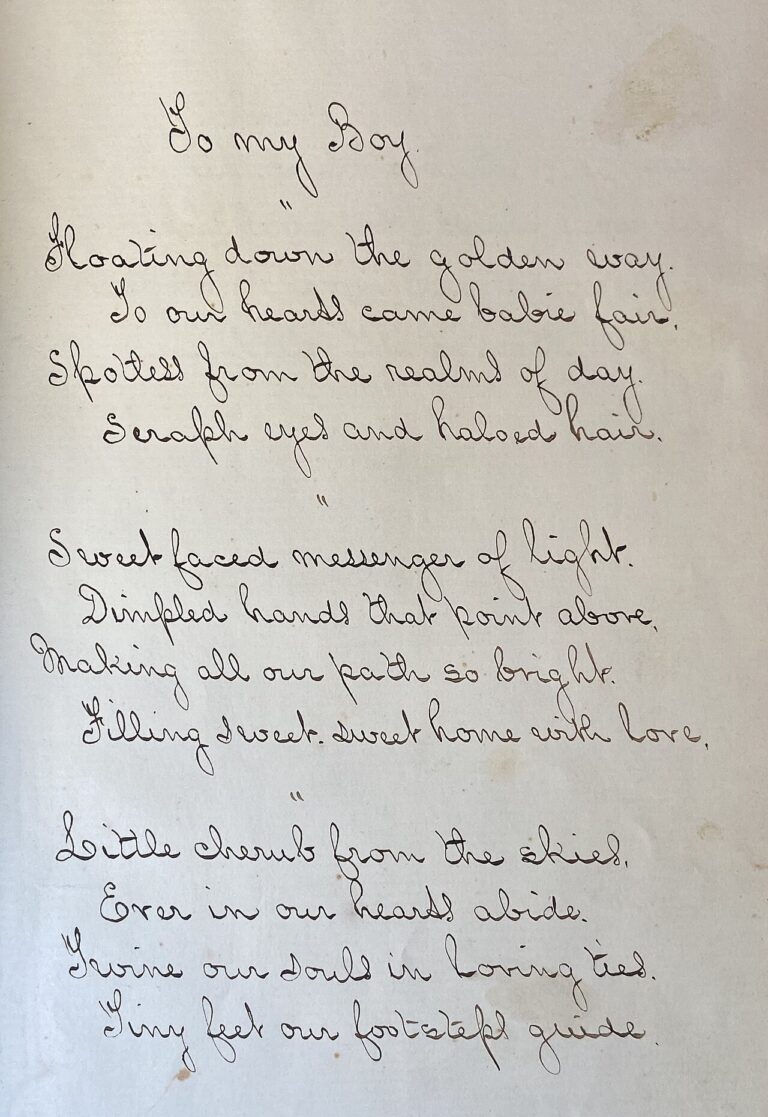 To my Boy.
"
Floating down the golden way.
To our hearts came babie fair,
Spotless from the realms of day.
Seraph eyes and haloed hair.
"
Sweet faced messenger of light.
Dimpled hands that point above,
Making all our path so bright.
Filling sweet. sweet home with love,
"
Little cherub from the skies,
Ever in our hearts abide.
Twine our souls in loving ties.
Tiny feet our footsteps guide.